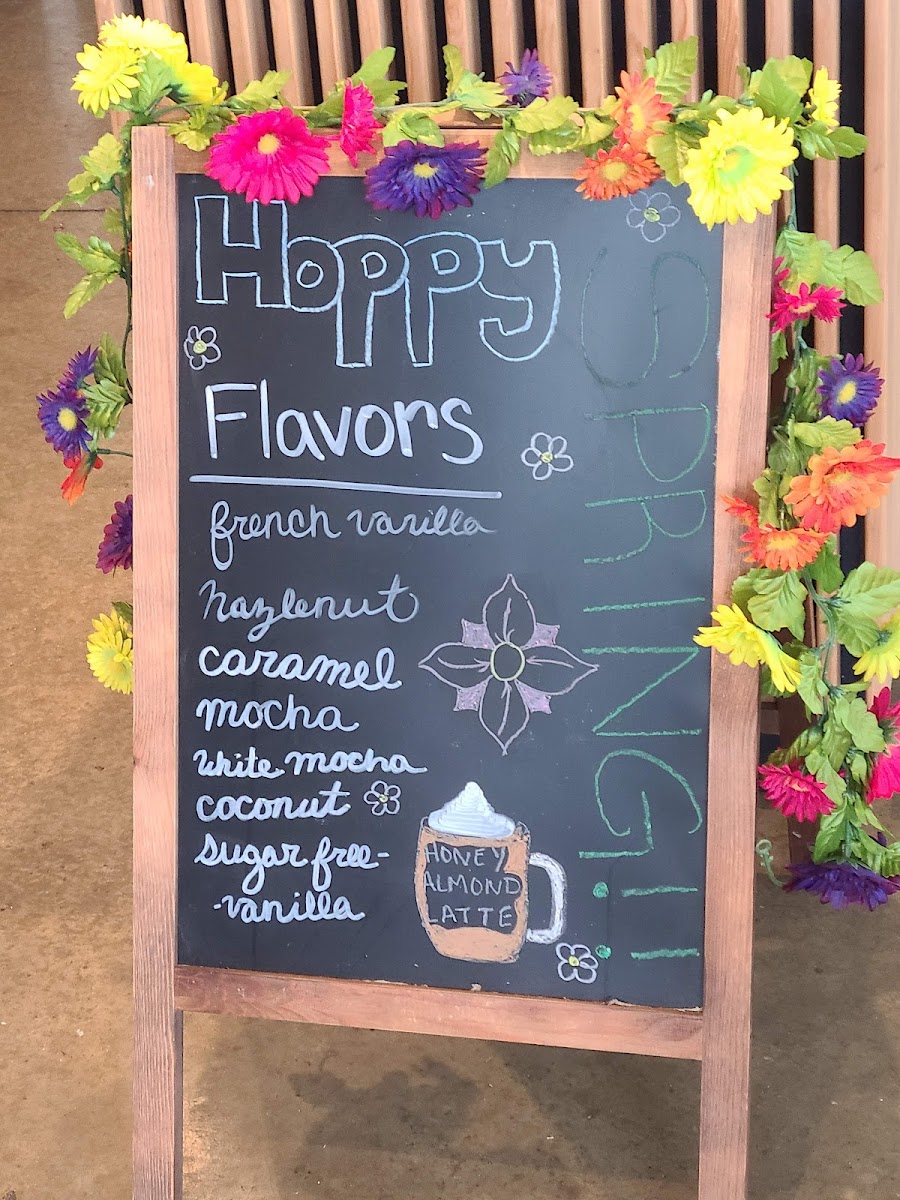 Hoppy
SPRING!!
Flavors
french vanilla
hazlenut
caramel
mocha
white mocha
coconut
sugar free-
-vanilla
HONEY
ALMOND
LATTE